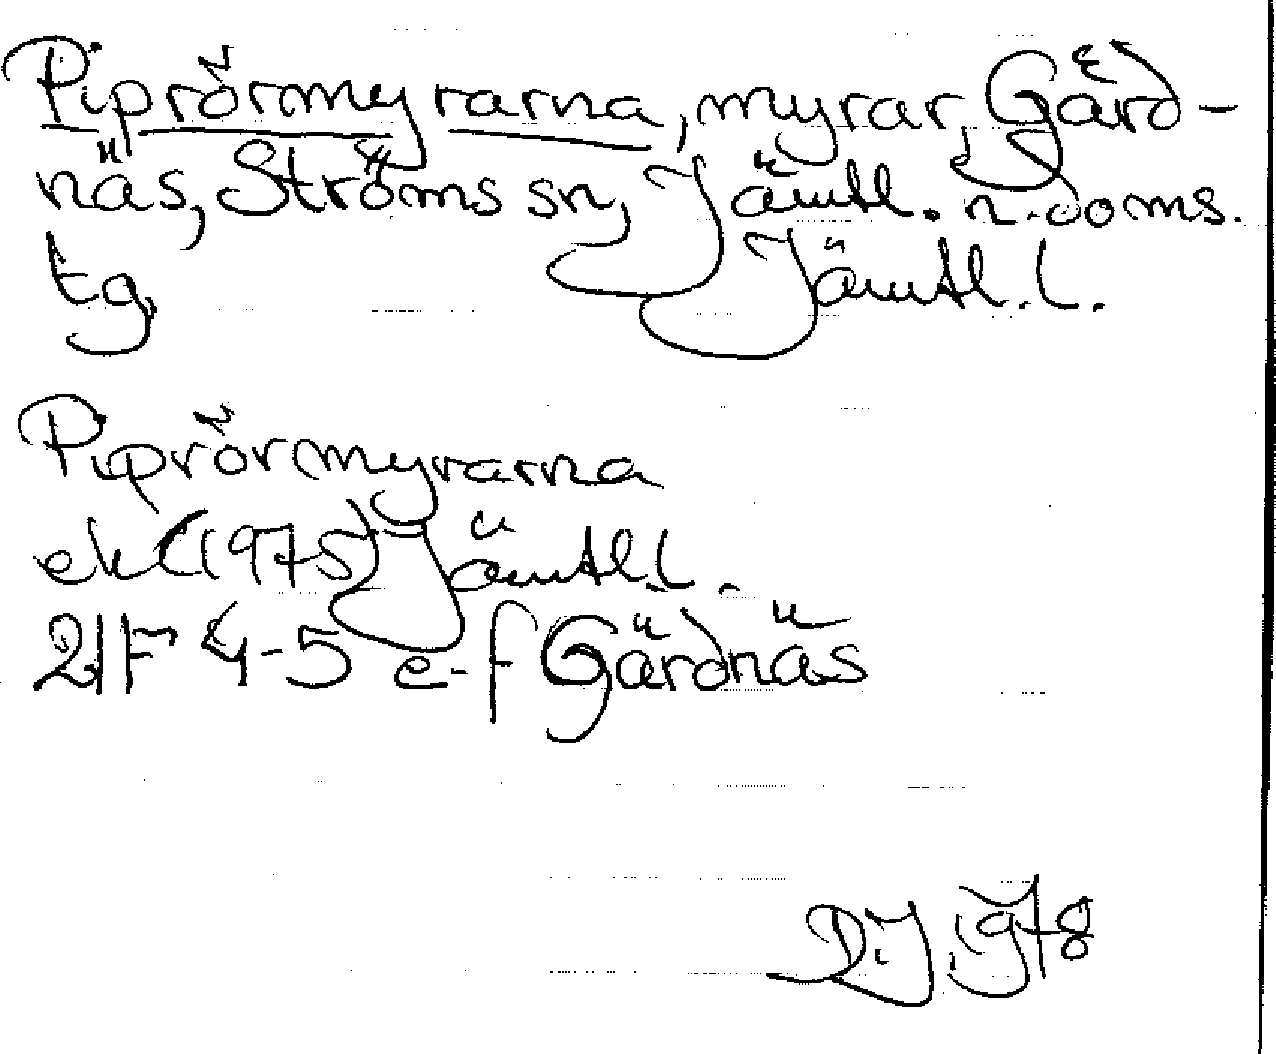 Piprörmyrarna, myrar, Gärd-
näs, Ströms sn, Jämtl. n. doms.
tg, Jämtl. l.
Piprörmyrarna
ek (1975) Jämtl. l.
21F 4-5 e-f Gärdnäs
D.J. 1978